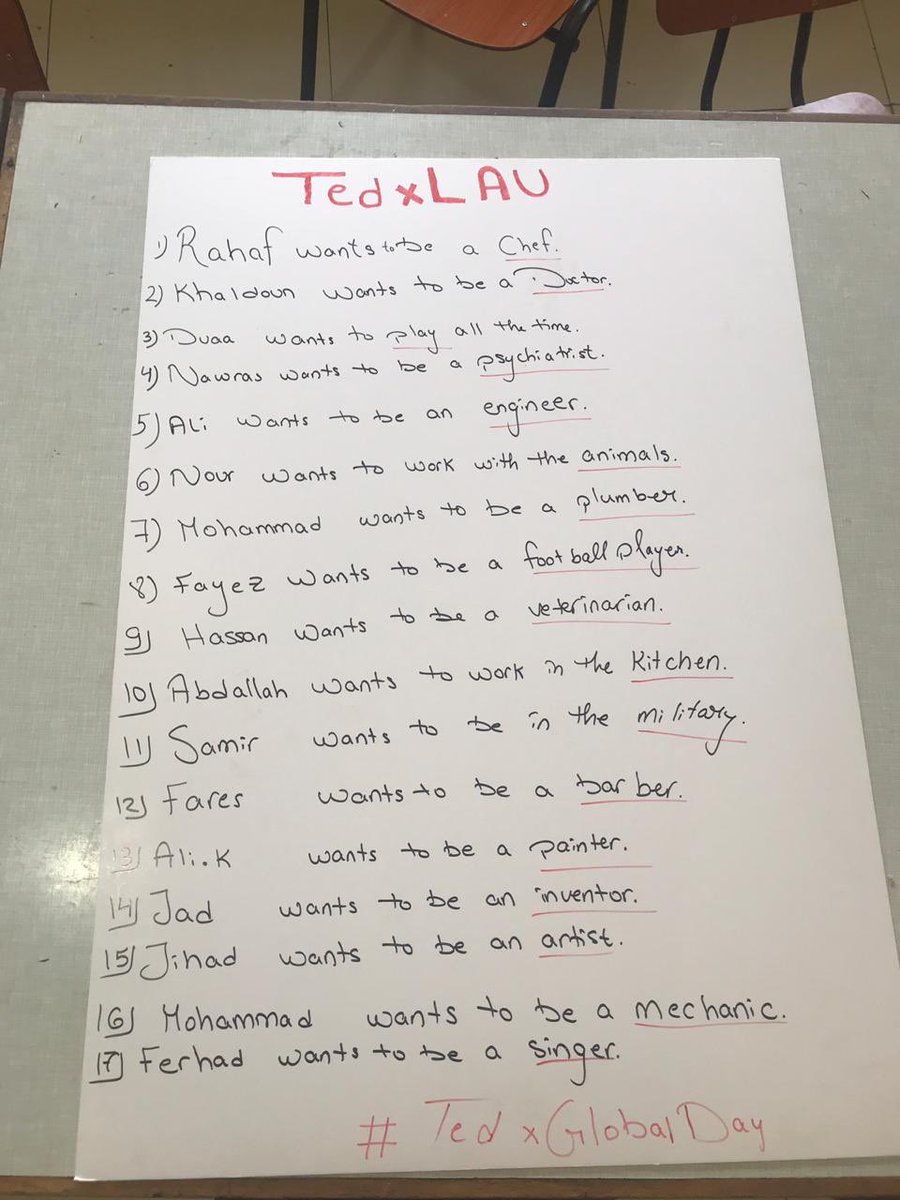 TedxLAU
1) Rahaf wants to be a Chef.
2) Khaldoun wants to be a Doctor.
3) Duaa wants to play all the time.
4) Nawras wants to be a psychiatrist.
5) Ali wants to be an engineer.
6) Nour wants to work with the animals.
7) Mohammad wants to be a plumber.
8) Fayez wants to be a football player.
9) Hassan wants to be a veterinarian.
10) Abdallah wants to work in the Kitchen.
11) Samir wants to be in the military.
12) Fares wants to be a barber.
13) Ali.K wants to be a painter.
14) Jad wants to be an inventor.
15) Jihad wants to be an artist.
16) Mohammad wants to be a mechanic.
17) Ferhad wants to be a singer.
# TedxGlobalDay